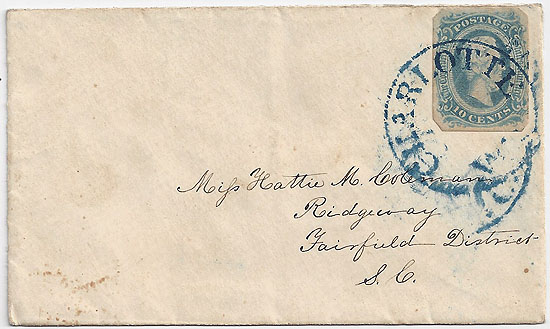 POSTAGE
10 CENTS
CHARLOTTE
Miss Hattie M. Coleman
Ridgeway
Fairfield District
S. C.